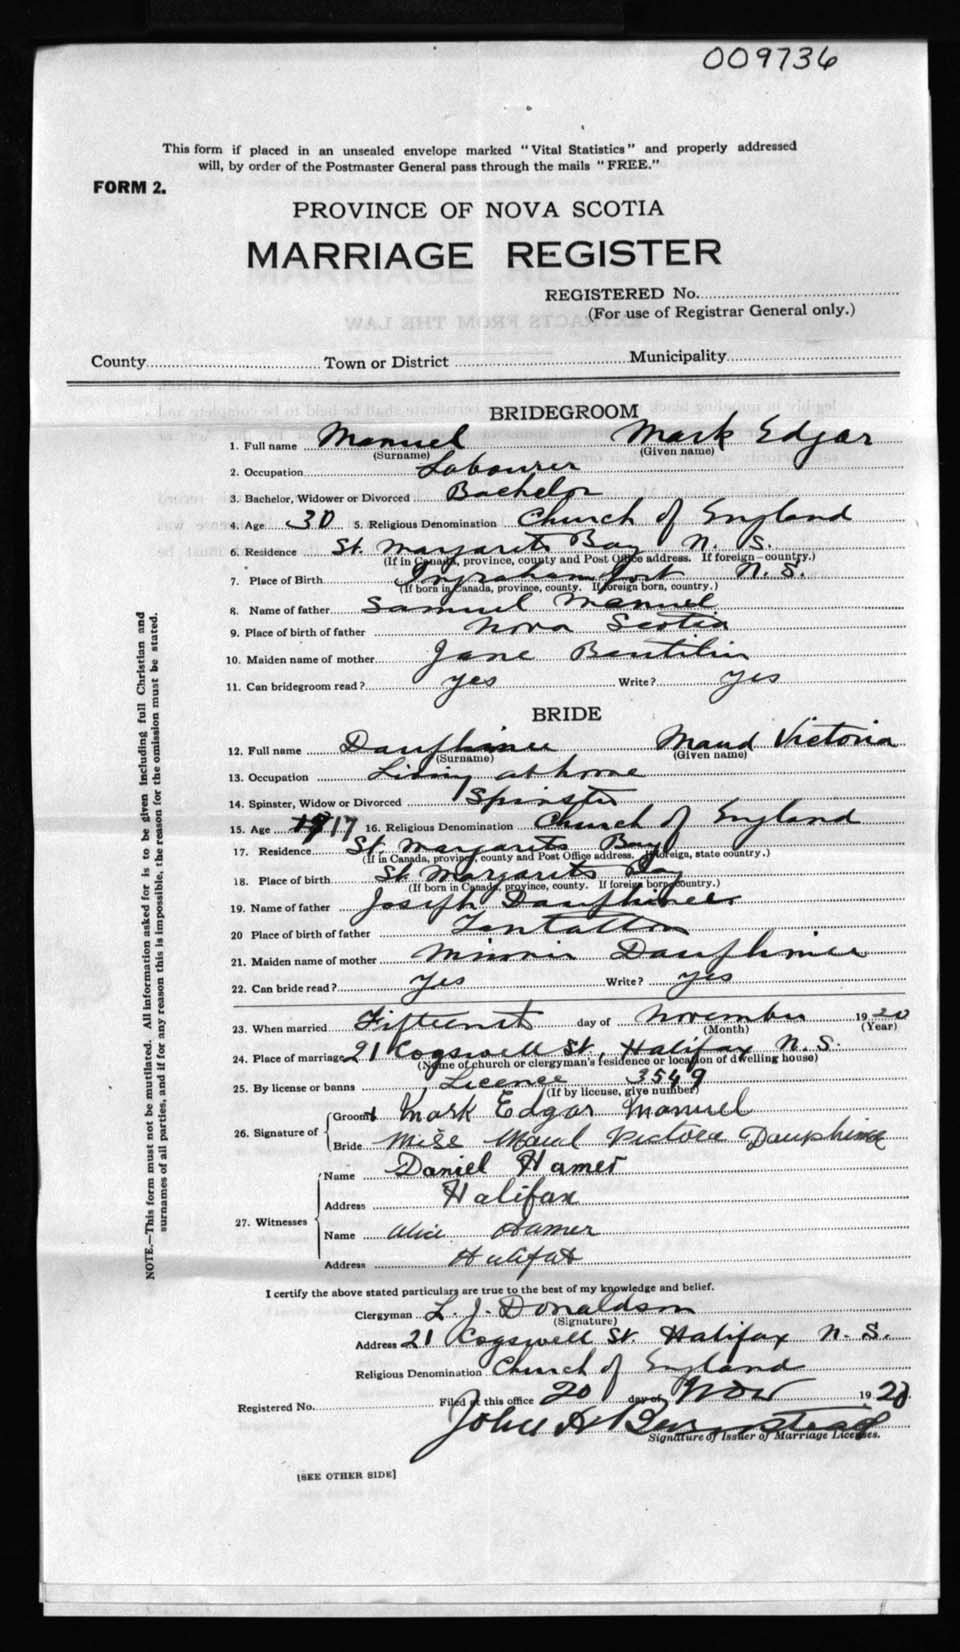 009736
This form if placed in an unsealed envelope marked "Vital Statistics" and properly addressed
will, by order of the Postmaster General pass through the mails "FREE."
FORM 2.
PROVINCE OF NOVA SCOTIA
MARRIAGE REGISTER
REGISTERED No.
(For use of Registrar General only.)
County Town or District Municipality
BRIDEGROOM
1. Full name Manuel Mark Edgar
(Surname) (Given name)
2. Occupation Labourer
3. Bachelor, Widower or Divorced Bachelor
4. Age 30 5. Religious Denomination Church of England
6. Residence St. Margarets Bay N. S.
(If in Canada, province, county and Post Office address. If foreign—country.)
7. Place of Birth Ingraham port N. S.
(If born in Canada, province, county. If foreign born, country.)
8. Name of father Samuel Manuel
9. Place of birth of father Nova Scotia
10. Maiden name of mother Jane
11. Can bridegroom read? yes Write? yes
BRIDE
12. Full name Dauphinee Maud Victoria
(Surname) (Given name)
13. Occupation Living at home
14. Spinster, Widow or Divorced Spinster
15. Age 17 16. Religious Denomination Church of England
17. Residence St. Margarets Bay
(If in Canada, province, county and Post Office address. If foreign, state country.)
18. Place of birth St Margarets Bay
(If born in Canada, province, county. If foreign born, country.)
19. Name of father Joseph Dauphinee
20 Place of birth of father Tantallon
21. Maiden name of mother Minnie Dauphinee
22. Can bride read? Yes Write? yes
23. When married Fifteenth day of November 1920
(Month) (Year)
24. Place of marriage 21 Cogswell St, Halifax N. S.
(Name of church or clergyman's residence or location of dwelling house)
25. By license or banns Licence 3549
(If by license, give number)
26. Signature of
Groom Mark Edgar Manuel
Bride Miss Maud Victoria Dauphinee
27. Witnesses
Name Daniel Hamer
Address Halifax
Name Alice Hamer
Address Halifax
I certify the above stated particulars are true to the best of my knowledge and belief.
Clergyman L. J. Donaldson
(Signature)
Address 21 Cogswell St. Halifax N. S.
Religious Denomination Church of England
Registered No. Filed at this office 20 day of Nov 1920.
John H
Signature of Issuer of Marriage Licenses.
[SEE OTHER SIDE]
NOTE.—This form must not be mutilated. All information asked for is to be given including full Christian and
surnames of all parties, and if for any reason this is impossible, the reason for the omission must be stated.